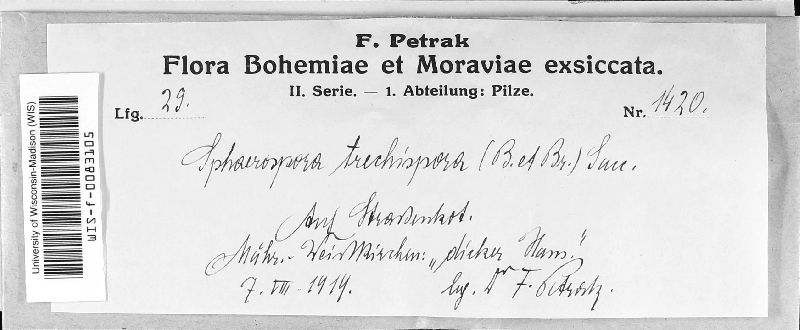 F. Petrak
Flora Bohemiae et Moraviae exsiccata.
II. Serie. — 1. Abteilung: Pilze.
Lfg. 29. Nr. 1420.
Sphaerospora trechispora (B. et Br.) Sacc.
Auf Straßenkot.
Mähr.-Weisskirchen: „dicker Hans."
7. VIII. 1919. leg. Dr F. Petrak.
University of Wisconsin-Madison (WIS)
WIS-f-0081305